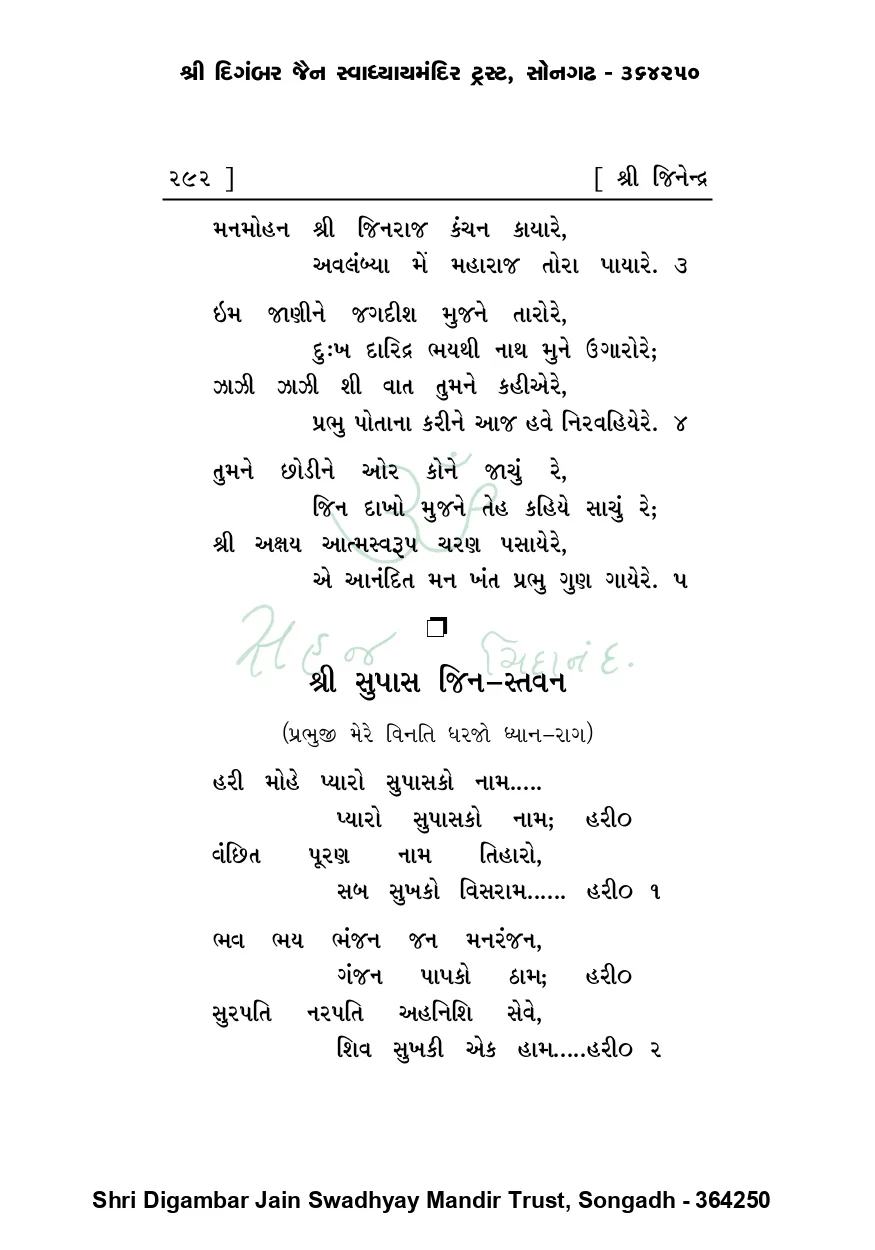 શ્રી દિગંબર જૈન સ્વાધ્યાયમંદિર ટ્રસ્ટ, સોનગઢ - ૩૬૪૨૫૦
૨૯૨ ] [ શ્રી જિનેન્દ્ર
મનમોહન શ્રી જિનરાજ કંચન કાયારે,
અવલંબ્યા મેં મહારાજ તોરા પાયારે. ૩
ઇમ જાણીને જગદીશ મુજને તારોરે,
દુઃખ દારિદ્ર ભયથી નાથ મુને ઉગારોરે;
ઝાઝી ઝાઝી શી વાત તુમને કહીએરે,
પ્રભુ પોતાના કરીને આજ હવે નિરવહિયેરે. ૪
તુમને છોડીને ઓર કોને જાચું રે,
જિન દાખો મુજને તેહ કહિયે સાચું રે;
શ્રી અક્ષય આત્મસ્વરૂપ ચરણ પસાયેરે,
એ આનંદિત મન ખંત પ્રભુ ગુણ ગાયેરે. ૫
ૐ
સહજ ચિદાનંદ.
શ્રી સુપાસ જિન–સ્તવન
(પ્રભુજી મેરે વિનતિ ધરજો ધ્યાન–રાગ)
હરી મોહે પ્યારો સુપાસકો નામ.....
પ્યારો સુપાસકો નામ; હરી૦
વંછિત પૂરણ નામ તિહારો,
સબ સુખકો વિસરામ...... હરી૦ ૧
ભવ ભય ભંજન જન મનરંજન,
ગંજન પાપકો ઠામ; હરી૦
સુરપતિ નરપતિ અહનિશિ સેવે,
શિવ સુખકી એક હામ.....હરી૦ ૨
Shri Digambar Jain Swadhyay Mandir Trust, Songadh - 364250